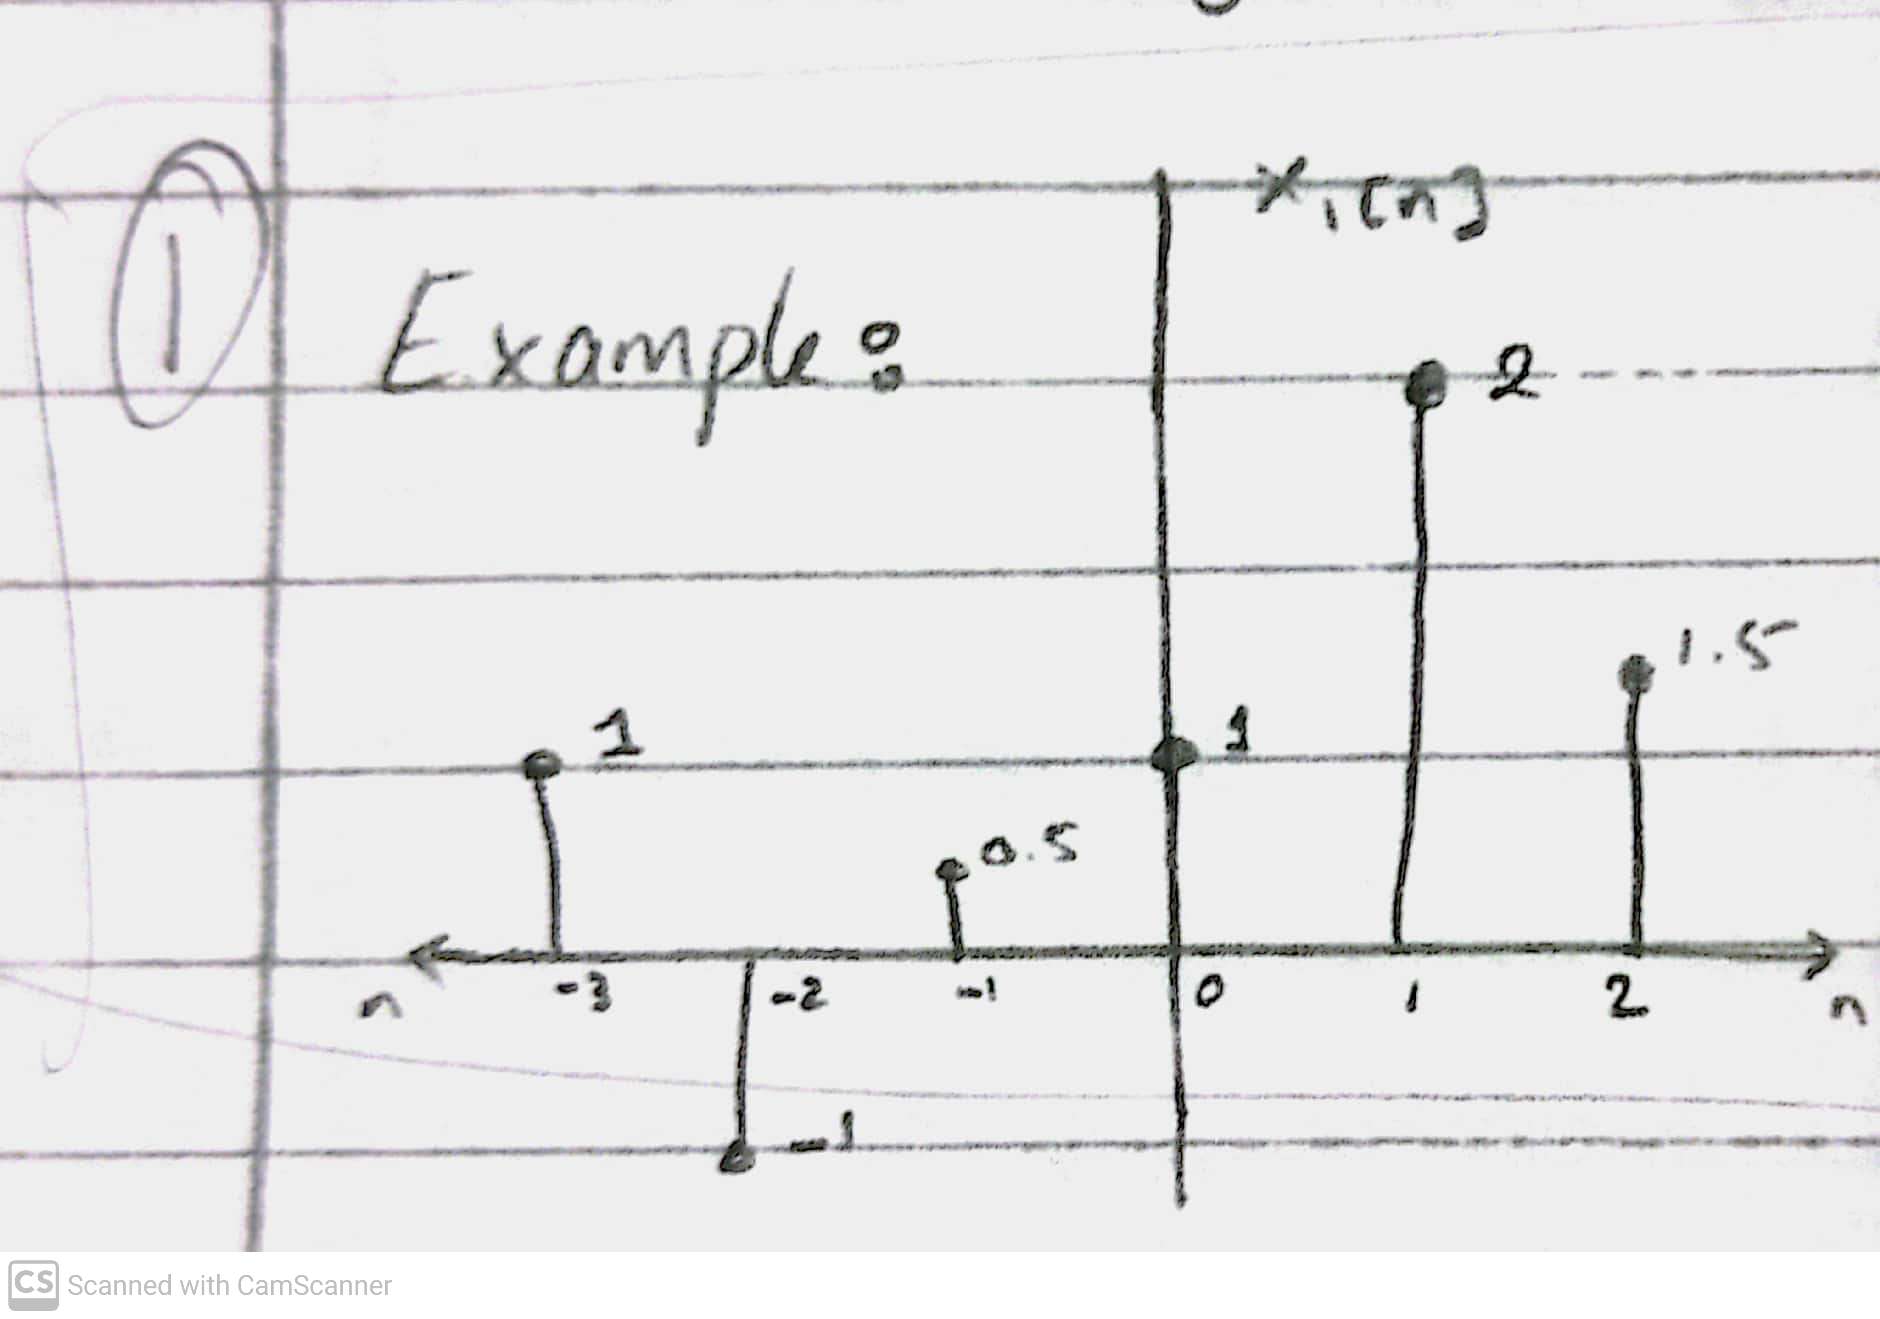 1
x₁[n]
Example:
2
1.5
1
1
0.5
-3 -2 -1 0 1 2
n n
-1
CS Scanned with CamScanner